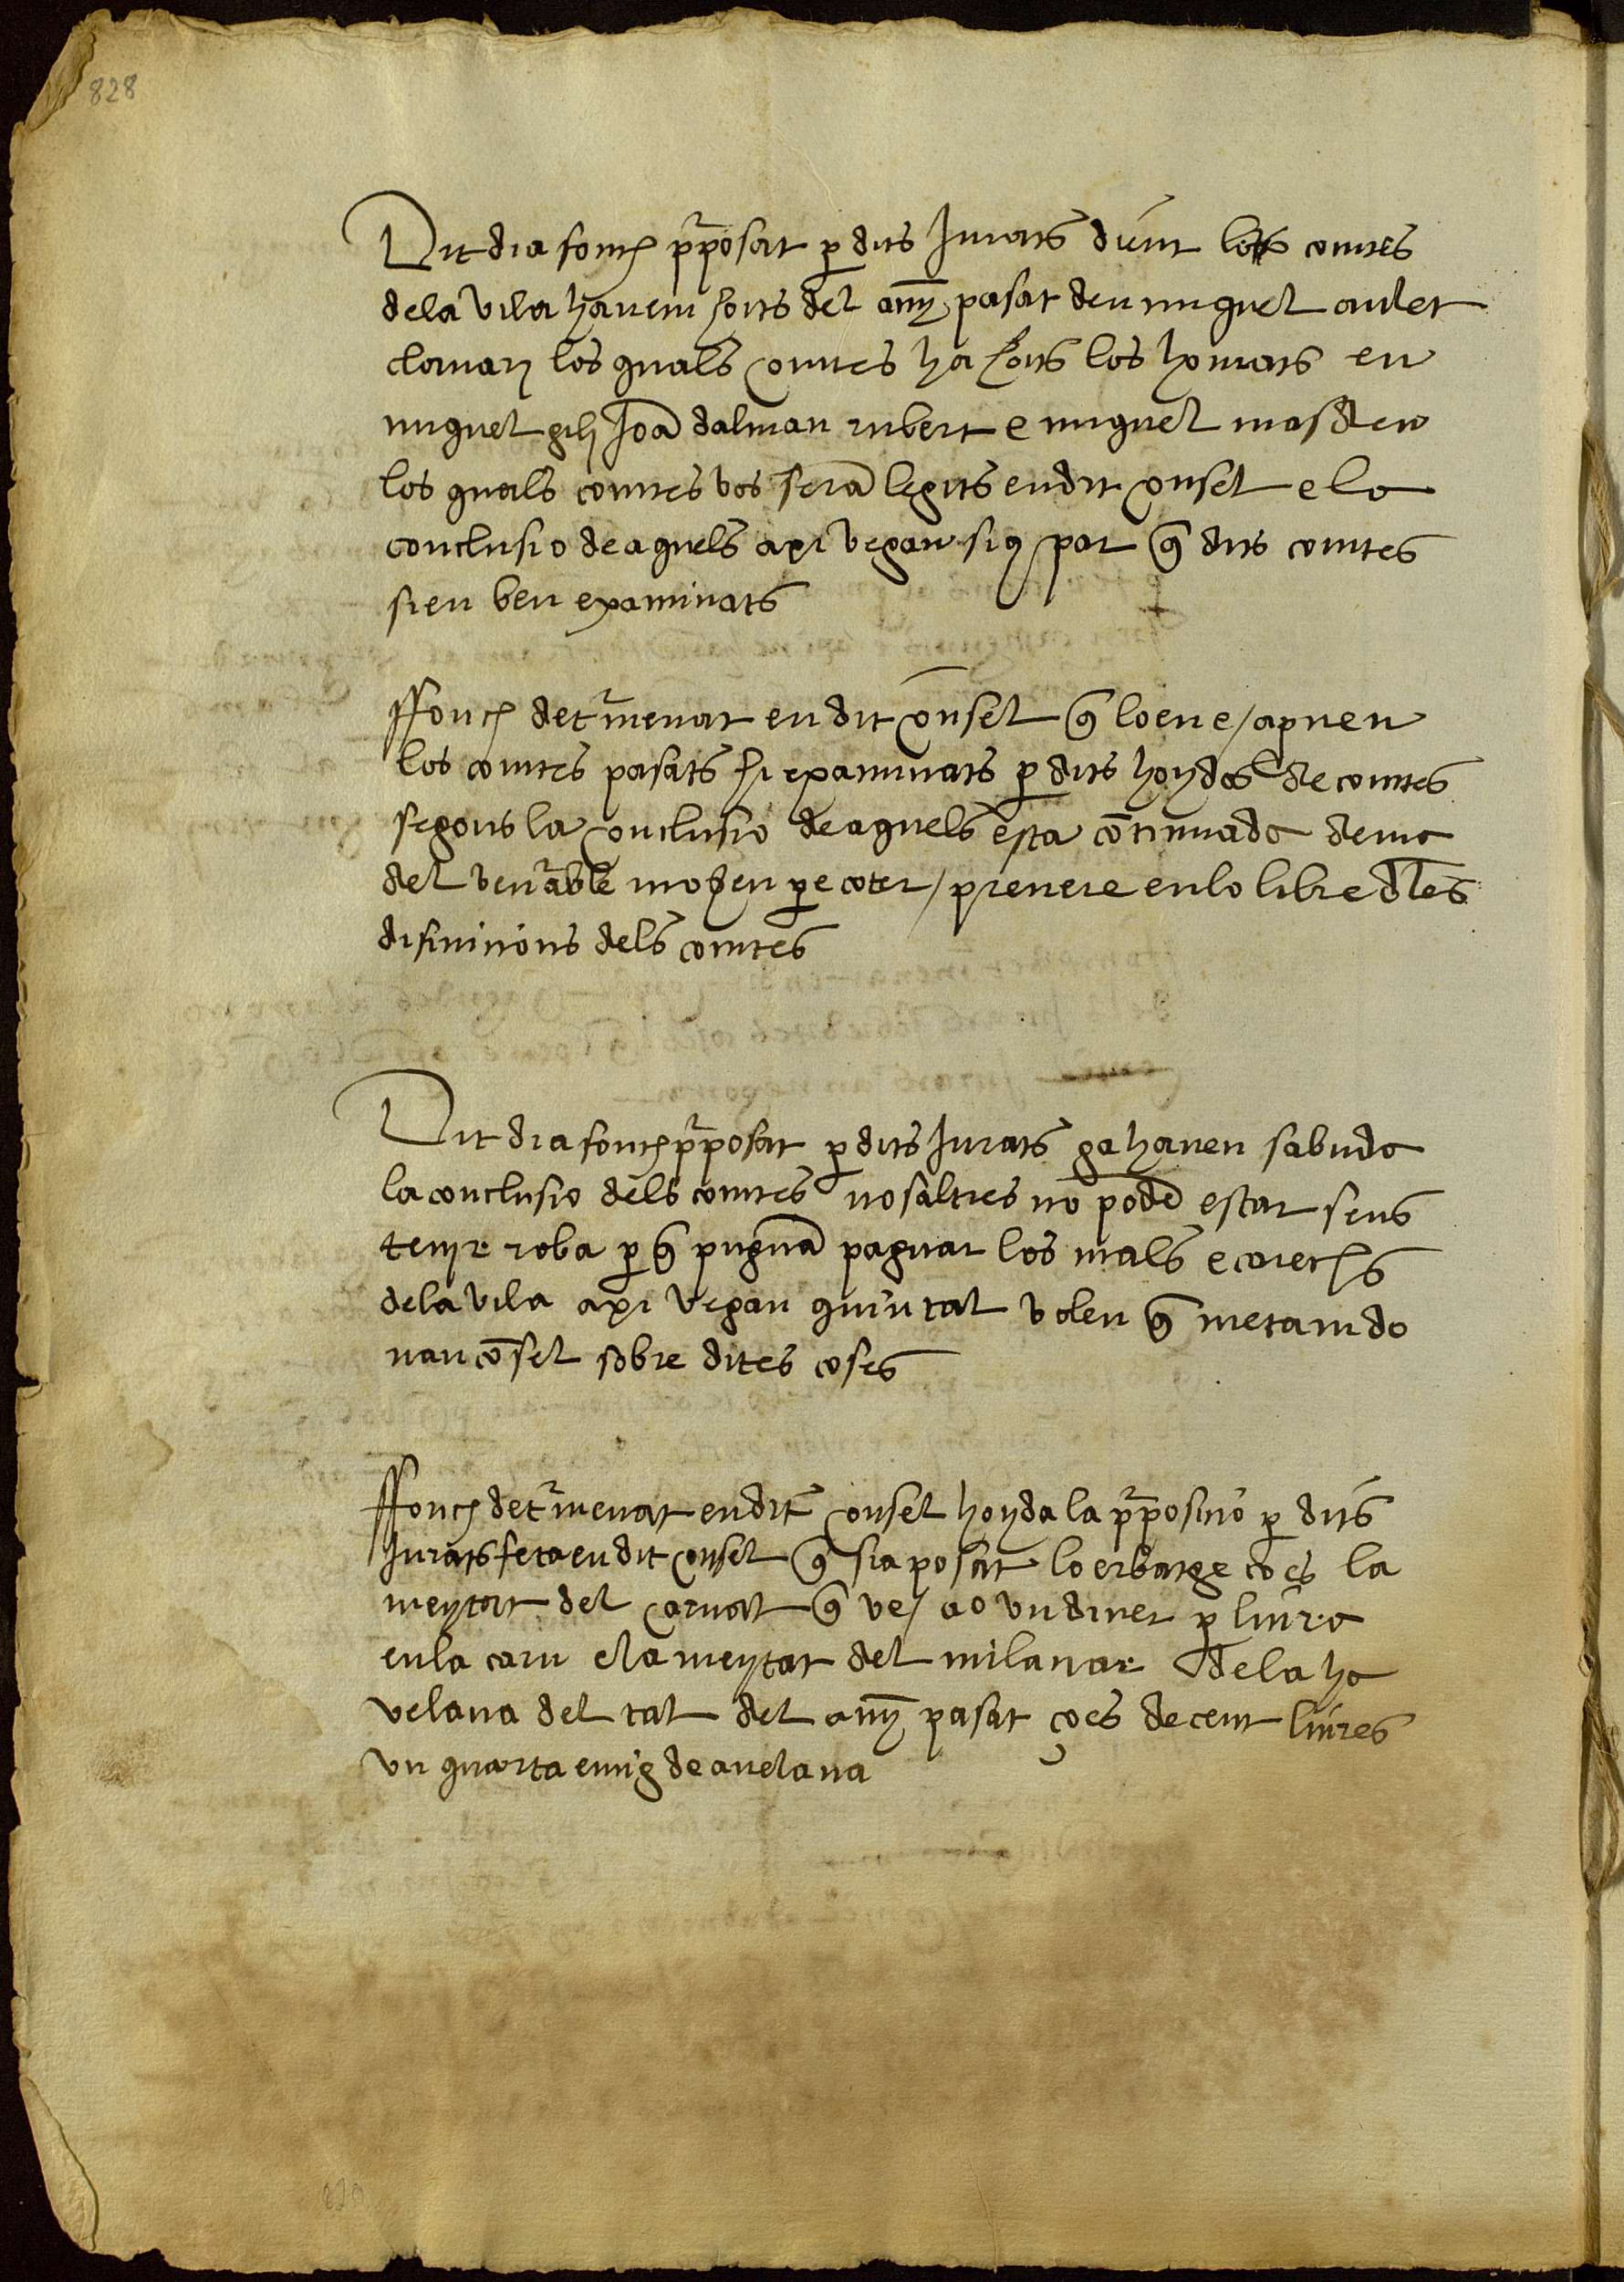 828
Dit dia fonch pposat p dits Jurats dient los comtes
dela vila havem hoits del any pasat den miguel aulet
clavari los quals comtes ha hoits los honrats en
miguel gili Joã dalmau rubert e miguel masdeu
los quals comtes vos serã legits en dit consel e la
conclusio de aquels axi vegan siq par q̃ dits comtes
sien ben examinats
ffonch detmenat en dit consel q̃ loen e / apnen
los comtes pasats hi examinats p dits hoydos de comtes
segons la conclusio de aquels esta cõtinuada de ma
del venable mosen pe coter / prevere en lo libre dles
difinitions dels comtes
Dit dia fonch pposat p dits Jurats ga haven sabuda
la conclusio dels comtes nosaltres no podẽ estar sens
tenyr roba p q̃ pugnã paguar los mals e carechs
dela vila axi vegan quin tal volen q̃ metam do
nan cõsel sobre dites coses
ffonch detmenat en dit consel hoyda la pposicio p dits
Jurats feta en dit consel q̃ sia posat lo erbatge co es la
meytat del carnal q̃ ve / a o un diner p liura
en la carn e la meytat del milanar de la ha
velana del tal del any pasat ço es de cent liures
un quarta e mig de avelana